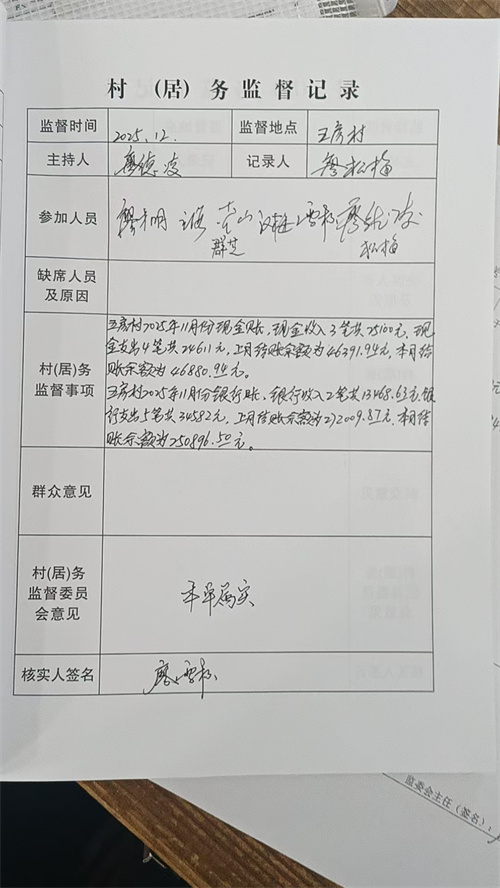 村 (居) 务 监 督 记 录
监督时间 2025.12. 监督地点 王房村
主持人 廖德凌 记录人 廖松梅
参加人员
群芝 松梅
缺席人员
及原因
村(居)务
监督事项
王房村2025年11月份现金账，现金收入3笔共25100元，现
金支出4笔共24611元，上月结账余额为46391.94元，本月结
账余额为46880.94元。
王房村2025年11月份银行账，银行收入2笔共13468.63元，银
行支出5笔共34582元，上月结账余额为272009.87元，本月结
账余额为250896.50元。
群众意见
村(居)务
监督委员
会意见
属实
核实人签名
监委会主任（签名）：